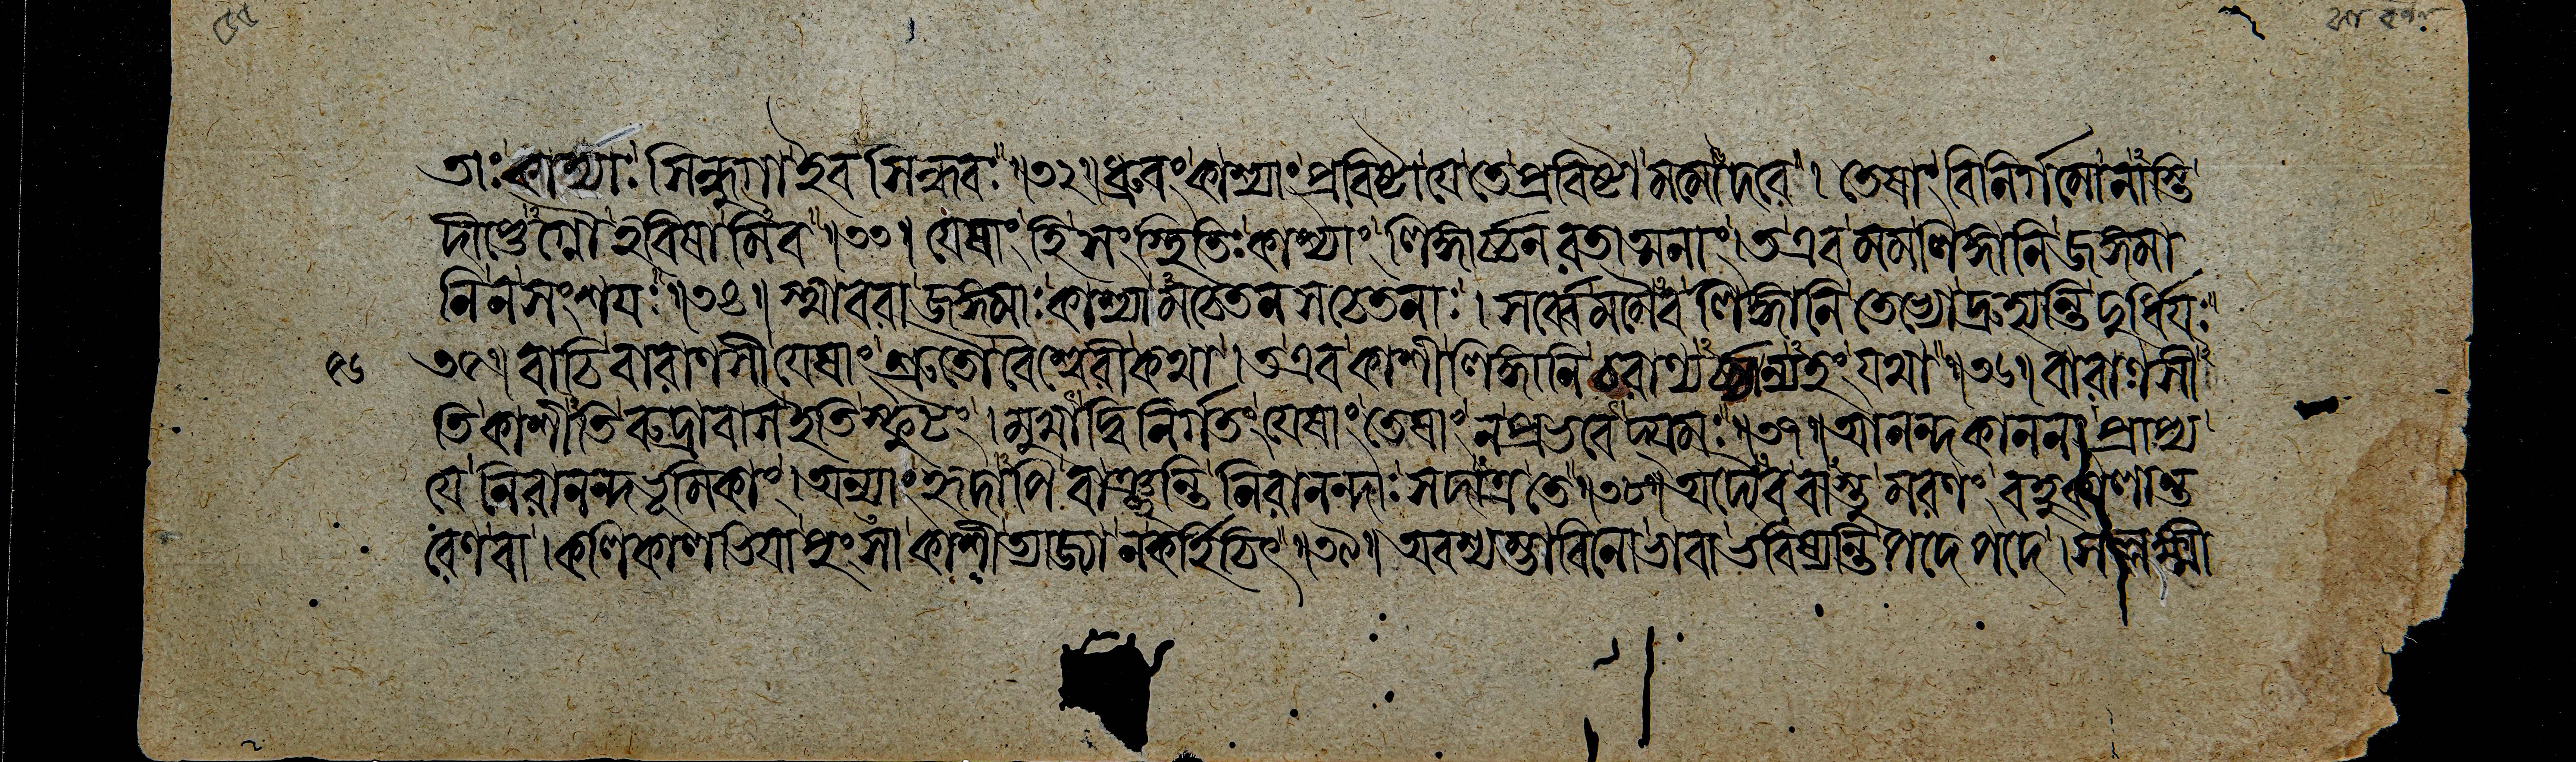 তাঃ কাশ্যাঃ সিন্ধুগা ইব সিন্ধবঃ ॥৩২॥ ধ্রুবং কাশ্যাং প্রবিষ্টা যে তে প্রবিষ্টা মমোদরে । তেষাং বিনির্গমো নাস্তি
দীপ্তেগ্নৌ হবিষামিব ॥৩৩॥ যেষাং হি সংস্থিতিঃ কাশ্যাং লিঙ্গার্চ্চনরতাত্মনাং । ত এব মম লিঙ্গানি জঙ্গমা
নি ন সংশযঃ ॥৩৪॥ স্থাবরা জঙ্গমাঃ কাশ্যামচেতনসচেতনাঃ । সর্ব্বে মমৈব লিঙ্গানি তেভ্যো দ্রুহ্যন্তি দুর্ধিযঃ
৩৫॥ বাচি বারাণসী যেষাং শ্রুতৌ বৈশ্বেশ্বরী কথা । ত এব কাশীলিঙ্গানি বরাণ্যর্চ্চান্যহং যথা ॥৩৬॥ বারাণসী
তি কাশীতি রুদ্রাবাস ইতি স্ফুটং । মুখাদ্বিনির্গতং যেষাং তেষাং ন প্রভবেদ্যমঃ ॥৩৭॥ আনন্দকাননং প্রাপ্য
যে নিরানন্দভূমিকাং । অন্যাং হৃদাপি বাঞ্ছন্তি নিরানন্দাঃ সদাত্র তে ॥৩৮॥ অদ্যৈব বাস্তু মরণং বহুকালান্ত
রেণ বা । কলিকালভিযা পুংসাং কাশী ত্যাজ্যা ন কর্হিচিৎ ॥৩৯॥ অবশ্যম্ভাবিনো ভাবা ভবিষ্যন্তি পদে পদে । সলক্ষ্মী